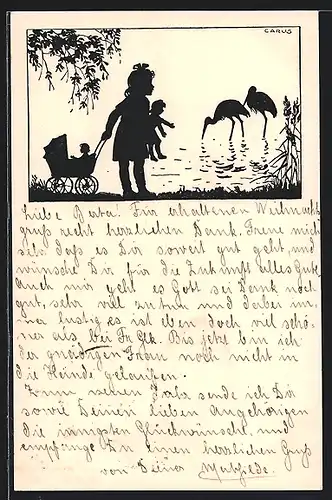 CARUS
Liebe Berta! Für erhaltenen Weihnachts
gruß recht herzlichen Dank. Freue mich
sehr daß es Dir soweit gut geht, und
wünsche Dir für die Zukunft alles Gute
Auch mir geht es Gott sei Dank noch
gut, sehr viel zu tun und dabei im-
mer lustig, es ist eben doch viel schö-
ner als bei Bis jetzt bin ich
der gnädigen Frau noch nicht in
die Hände gelaufen.
Zum neuen Jahr sende ich Dir
sowie Deinen lieben Angehörigen
die innigsten Glückwünsche und
empfange Du einen herzlichen Gruß
von Deiner Mathilde.